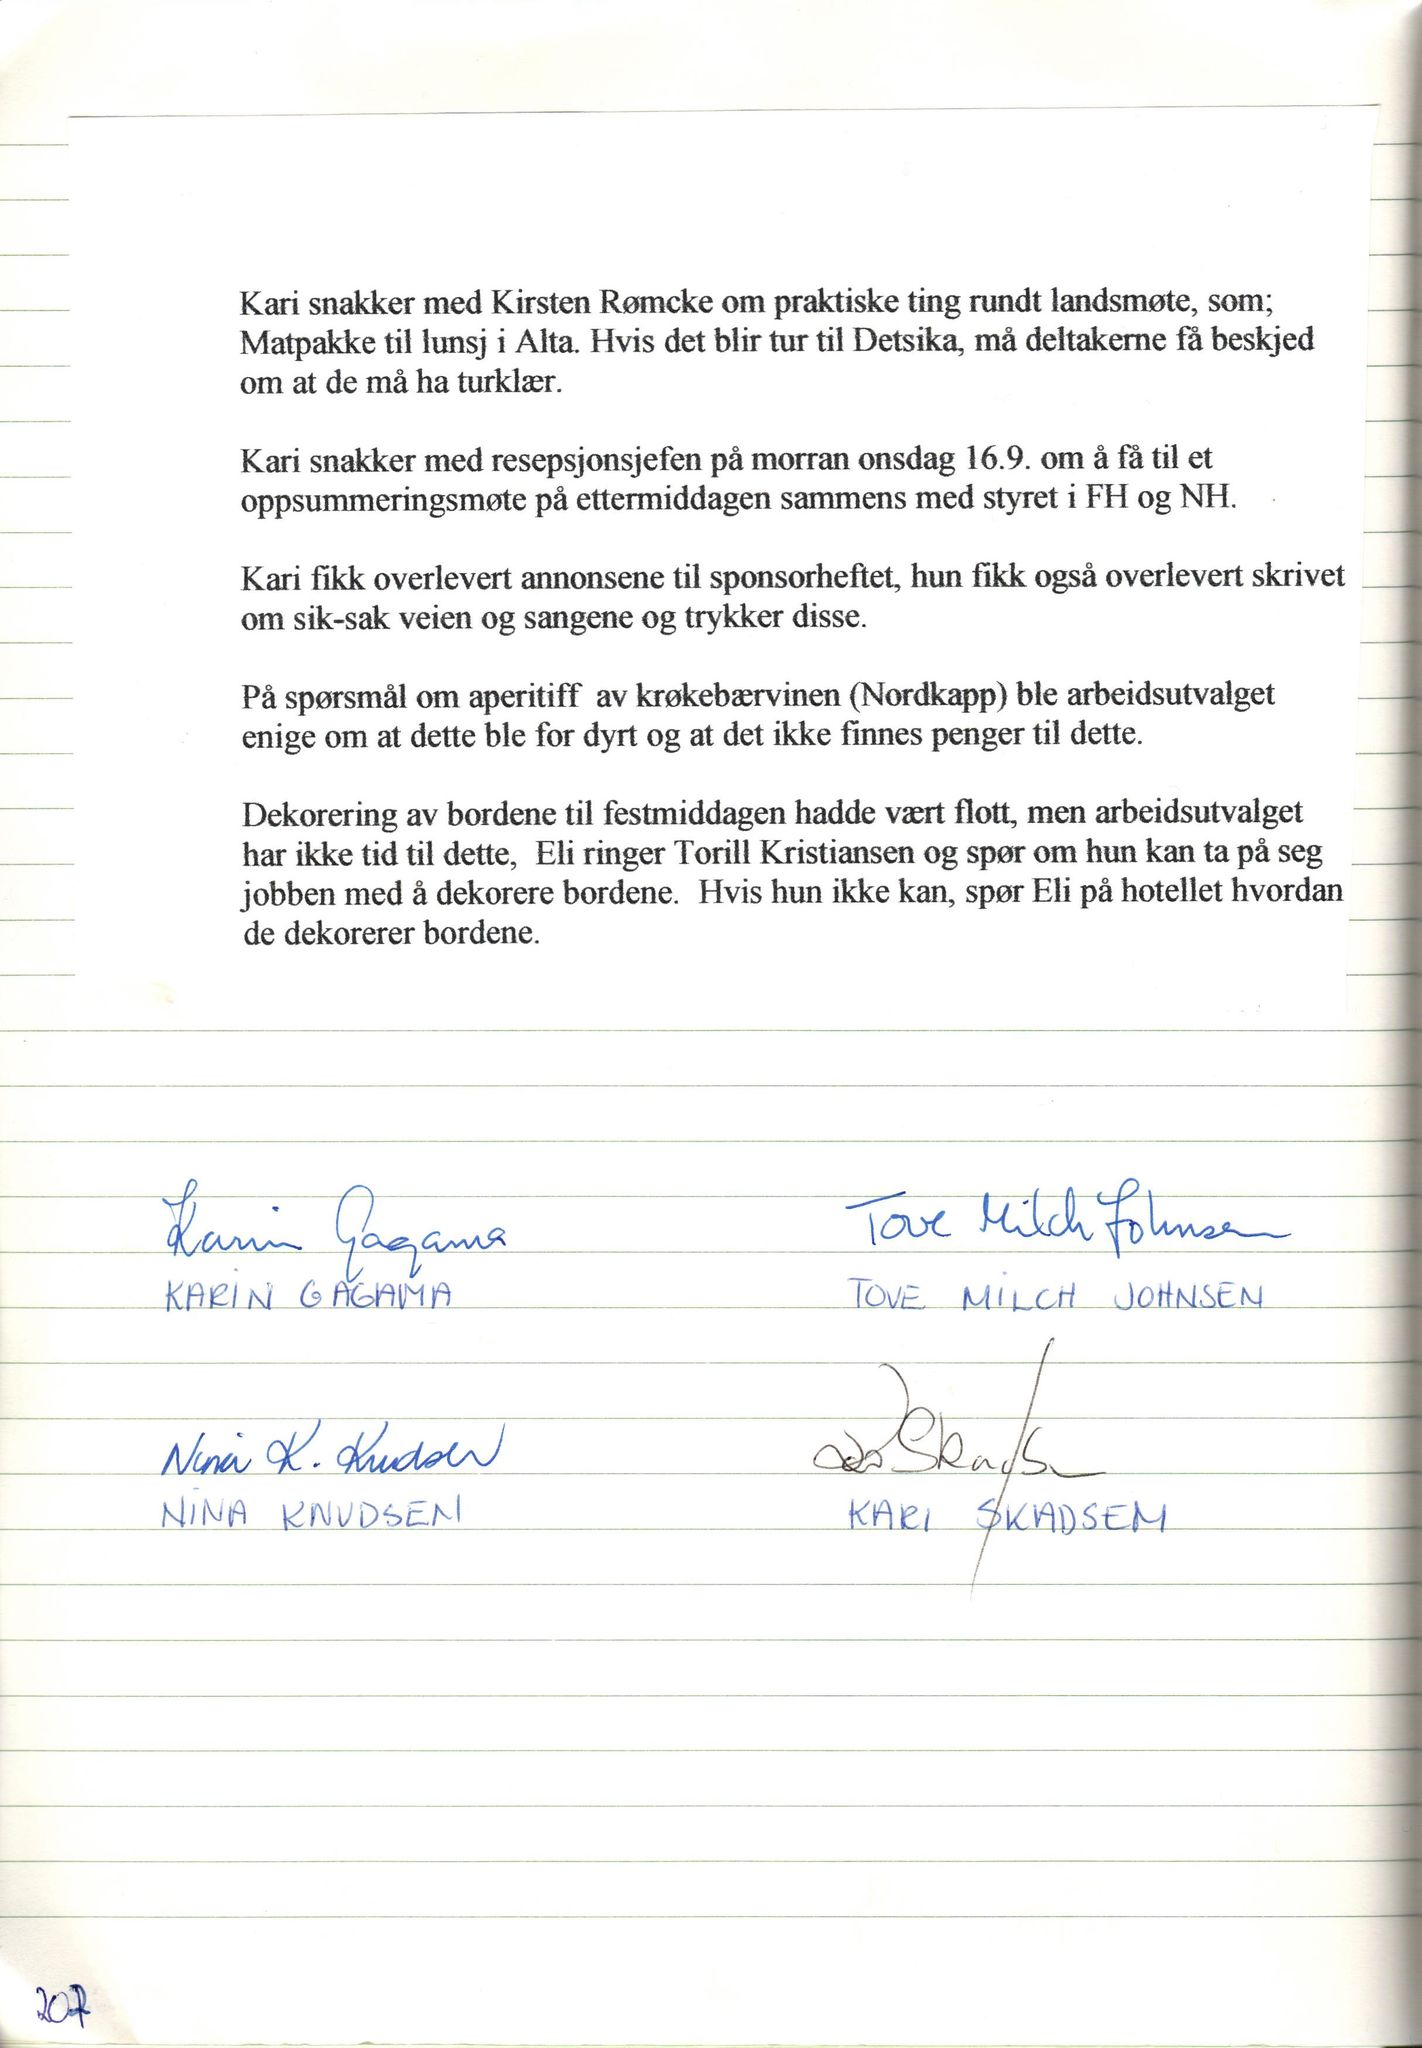 Kari snakker med Kirsten Rømcke om praktiske ting rundt landsmøte, som;
Matpakke til lunsj i Alta. Hvis det blir tur til Detsika, må deltakerne få beskjed
om at de må ha turklær.
Kari snakker med resepsjonsjefen på morran onsdag 16.9. om å få til et
oppsummeringsmøte på ettermiddagen sammens med styret i FH og NH.
Kari fikk overlevert annonsene til sponsorheftet, hun fikk også overlevert skrivet
om sik-sak veien og sangene og trykker disse.
På spørsmål om aperitiff  av krøkebærvinen (Nordkapp) ble arbeidsutvalget
enige om at dette ble for dyrt og at det ikke finnes penger til dette.
Dekorering av bordene til festmiddagen hadde vært flott, men arbeidsutvalget
har ikke tid til dette,  Eli ringer Torill Kristiansen og spør om hun kan ta på seg
jobben med å dekorere bordene.  Hvis hun ikke kan, spør Eli på hotellet hvordan
de dekorerer bordene.
Karin Gagama
KARIN GAGAMA
Tove Milch Johnsen
TOVE MILCH JOHNSEN
Nina K. Knudsen
NINA KNUDSEN
Skads
KARI SKADSEM
207